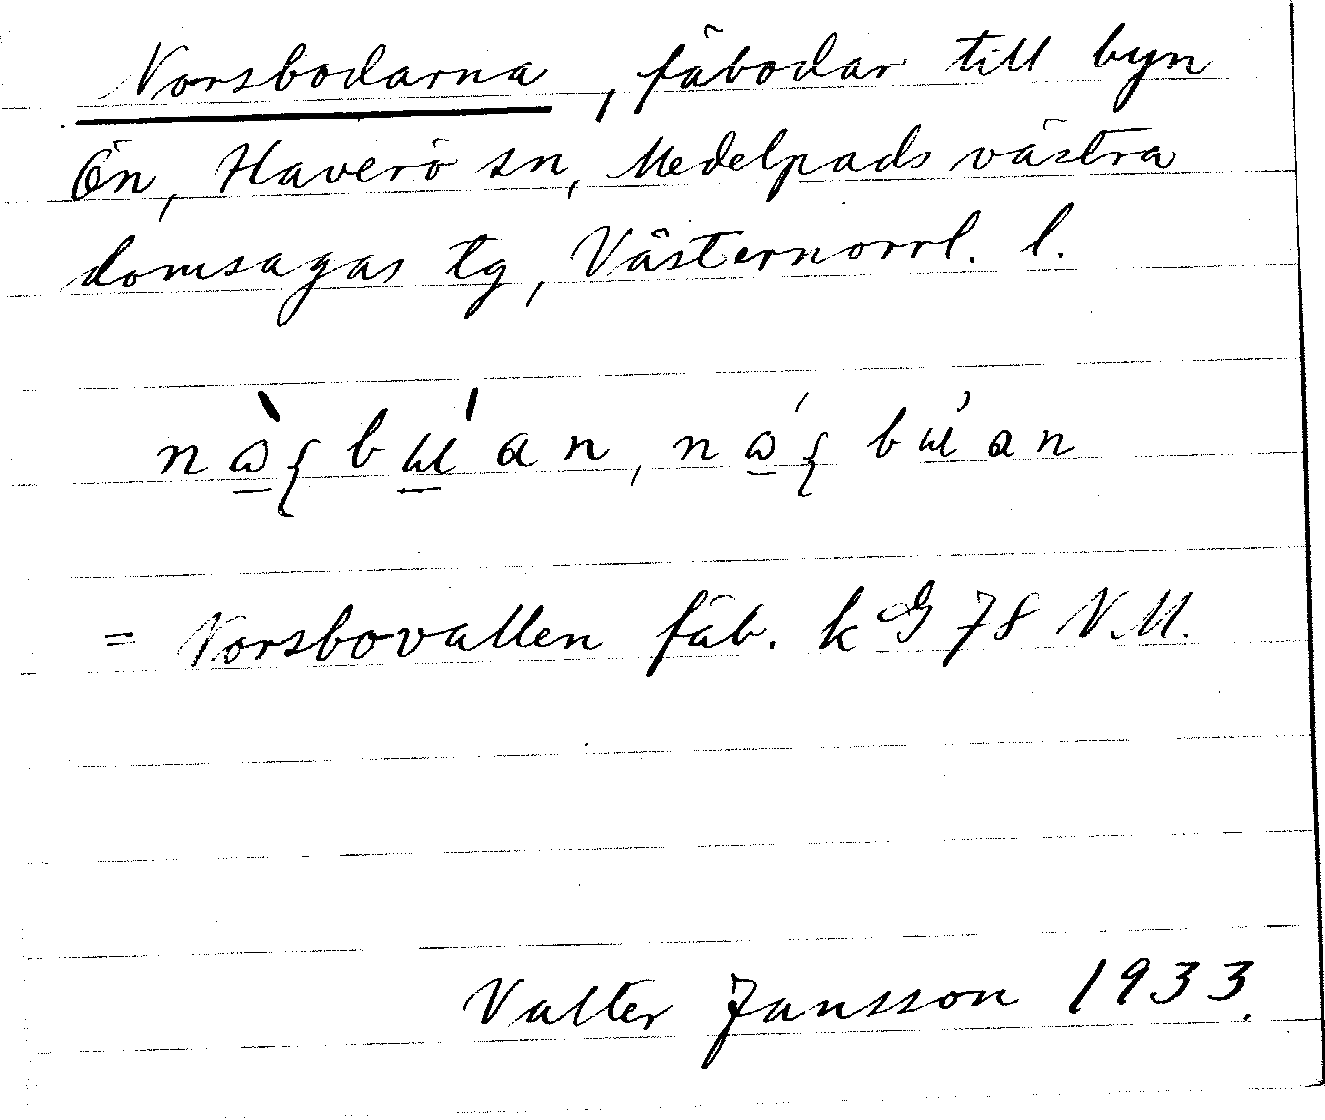 Norsbodarna, fäbodar till byn
Ön, Haverö sn, Medelpads västra
domsagas tg, Västernorrl. l.
= Norsbovallen fäb. kG 78 N.M.
Valter Jansson 1933.